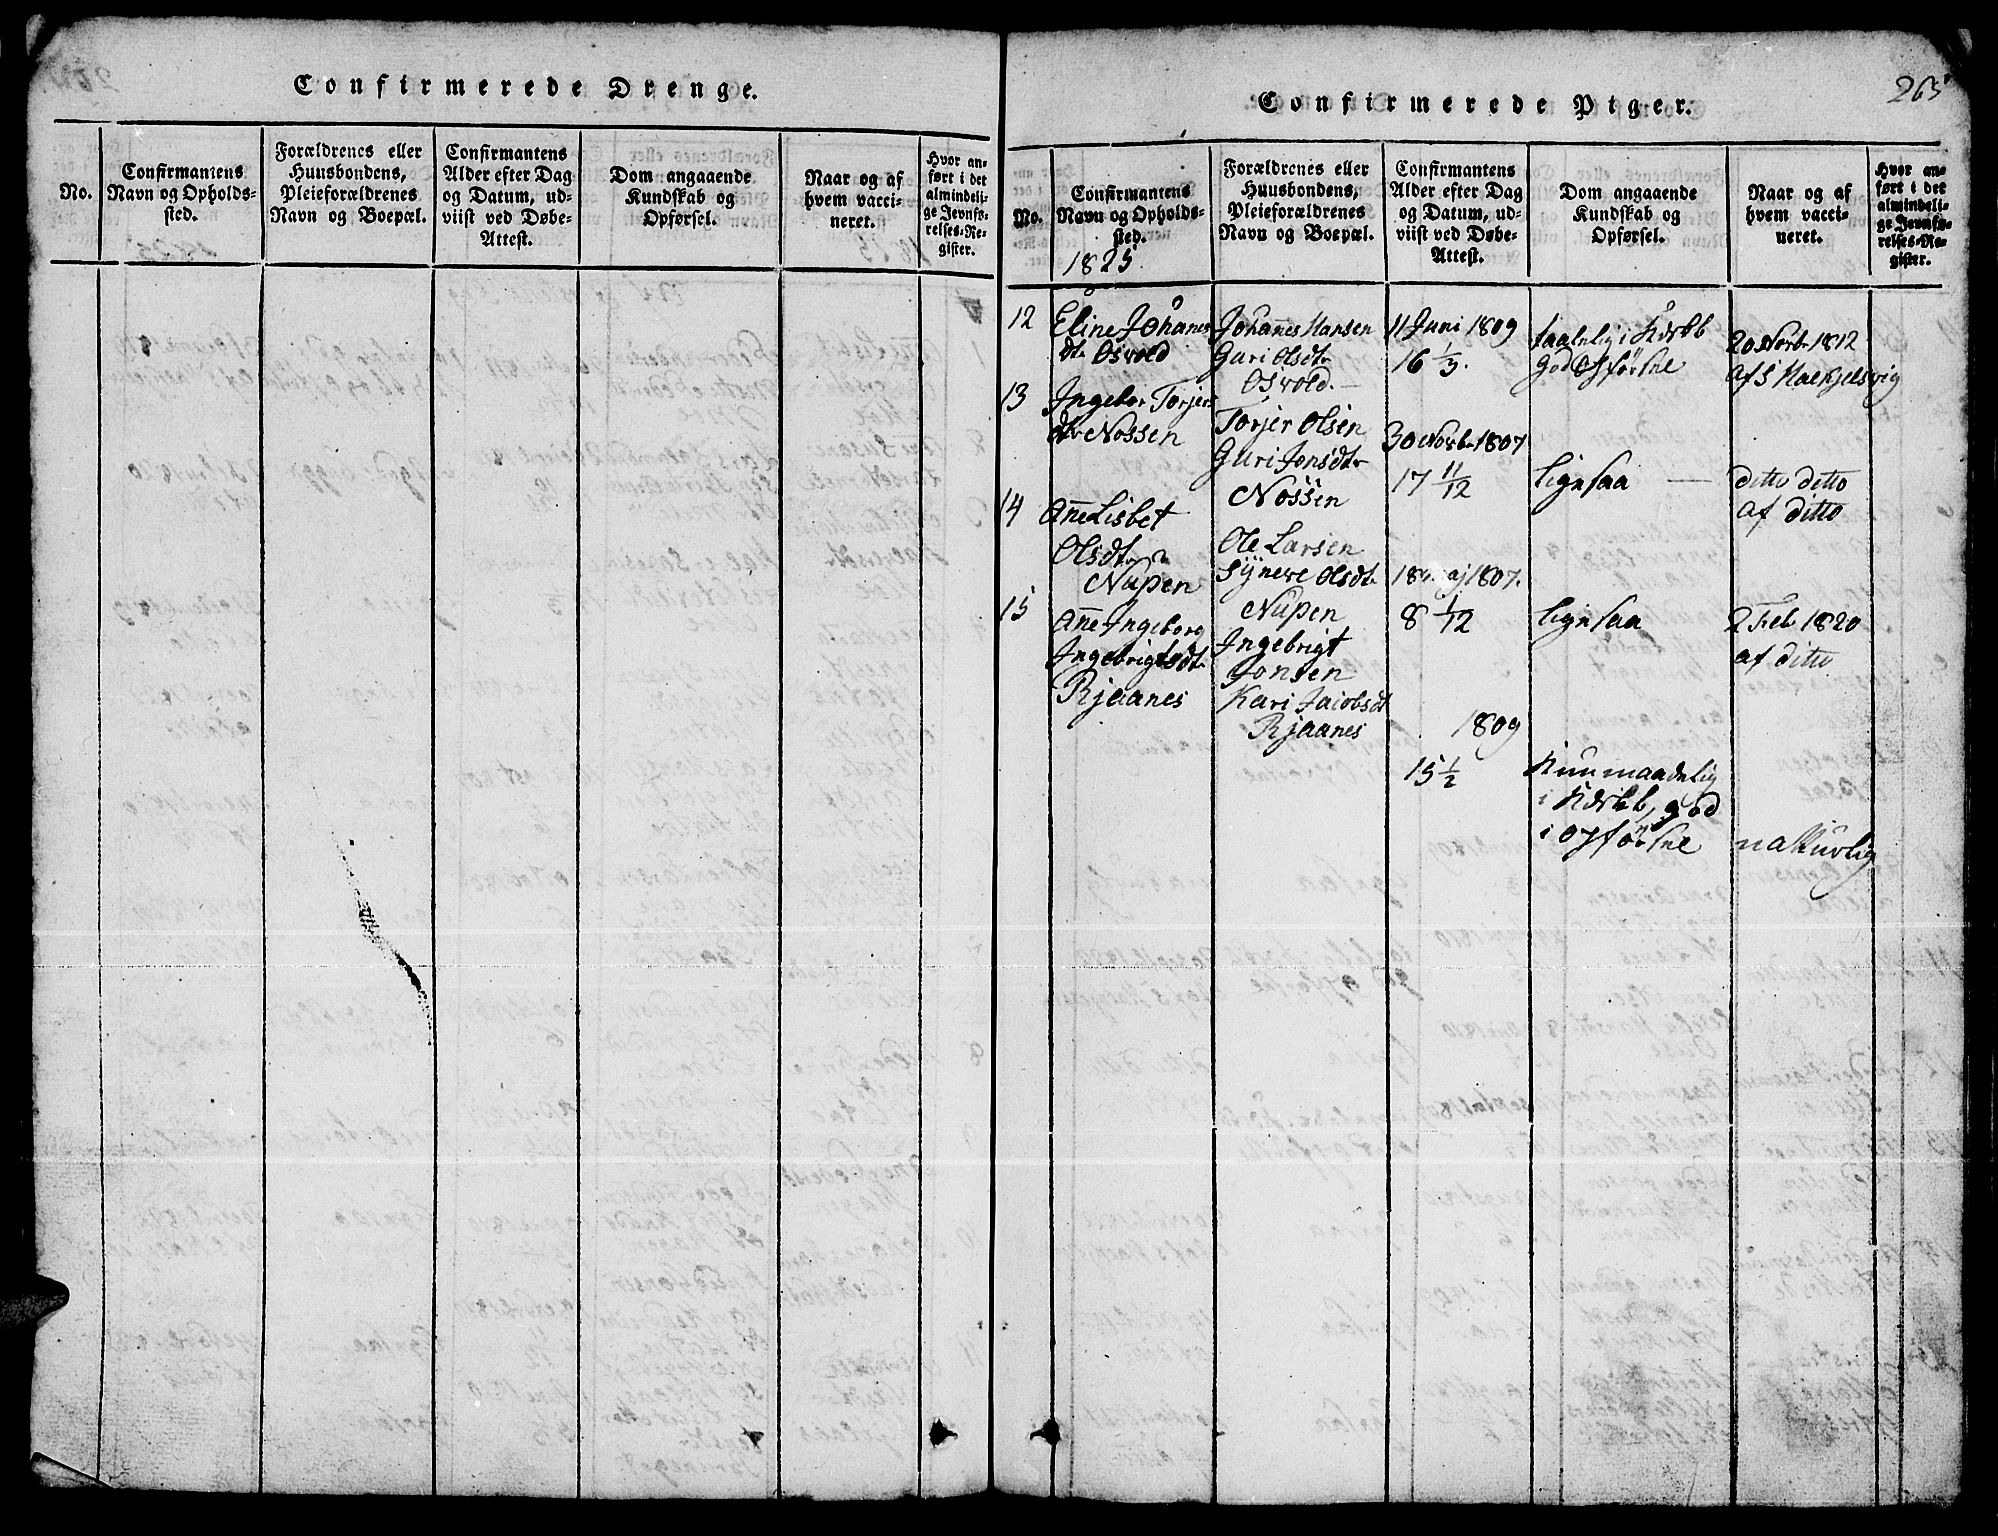 Confirmerede Drenge.
No.
Confirmantens
Navn og Opholds-
sted.
Forældrenes eller
Huusbondens,
Pleieforældrenes
Navn og Boepæl.
Confirmantens
Alder efter Dag
og Datum, ud-
viist ved Døbe-
Attest.
Dom angaaende
Kundskab og
Opførsel.
Naar og af
hvem vacci-
neret.
Hvor an-
ført i det
almindeli-
ge Jevnfø-
relses-Re-
gister.
Confirmerede Piger.
265
No.
Confirmantens
Navn og Opholds-
sted.
1825
Forældrenes eller
Huusbondens,
Pleieforældrenes
Navn og Boepæl.
Confirmantens
Alder efter Dag
og Datum, ud-
viist ved Døbe-
Attest.
Dom angaaende
Kundskab og
Opførsel.
Naar og af
hvem vacci-
neret.
Hvor an-
ført i det
almindeli-
ge Jevnfø-
relses-Re-
gister.
12
Eline Johanes
dtr Osvold
Johannes Hansen
Guri Olsdtr
Osvold
11 Juni 1809
16 1/3.
taalelig i
god Opførsle
20 Novbr 1812
af S
13
Ingebor Torjers
dtr Nossen
Torjer Olsen
Guri Jonsdtr
Nossen
30 Novbr 1807
17 11/12
ligesaa
ditto ditto
af ditto
14
Anne Lisbet
Olsdtr
Nupen
Ole Larsen
Syneve Olsdtr
Nupen
18 Maj 1807.
8 1/12
ligesaa
2 Feb 1820
af ditto
15
Anne Ingeborg
Ingebrigtsdtr
Rjaanes
Ingebrigt
Jonsen
Kari Jacobsdt
Rjaanes
1809
15 1/2
Kun maadelig
i god
i opførsle
naturlig